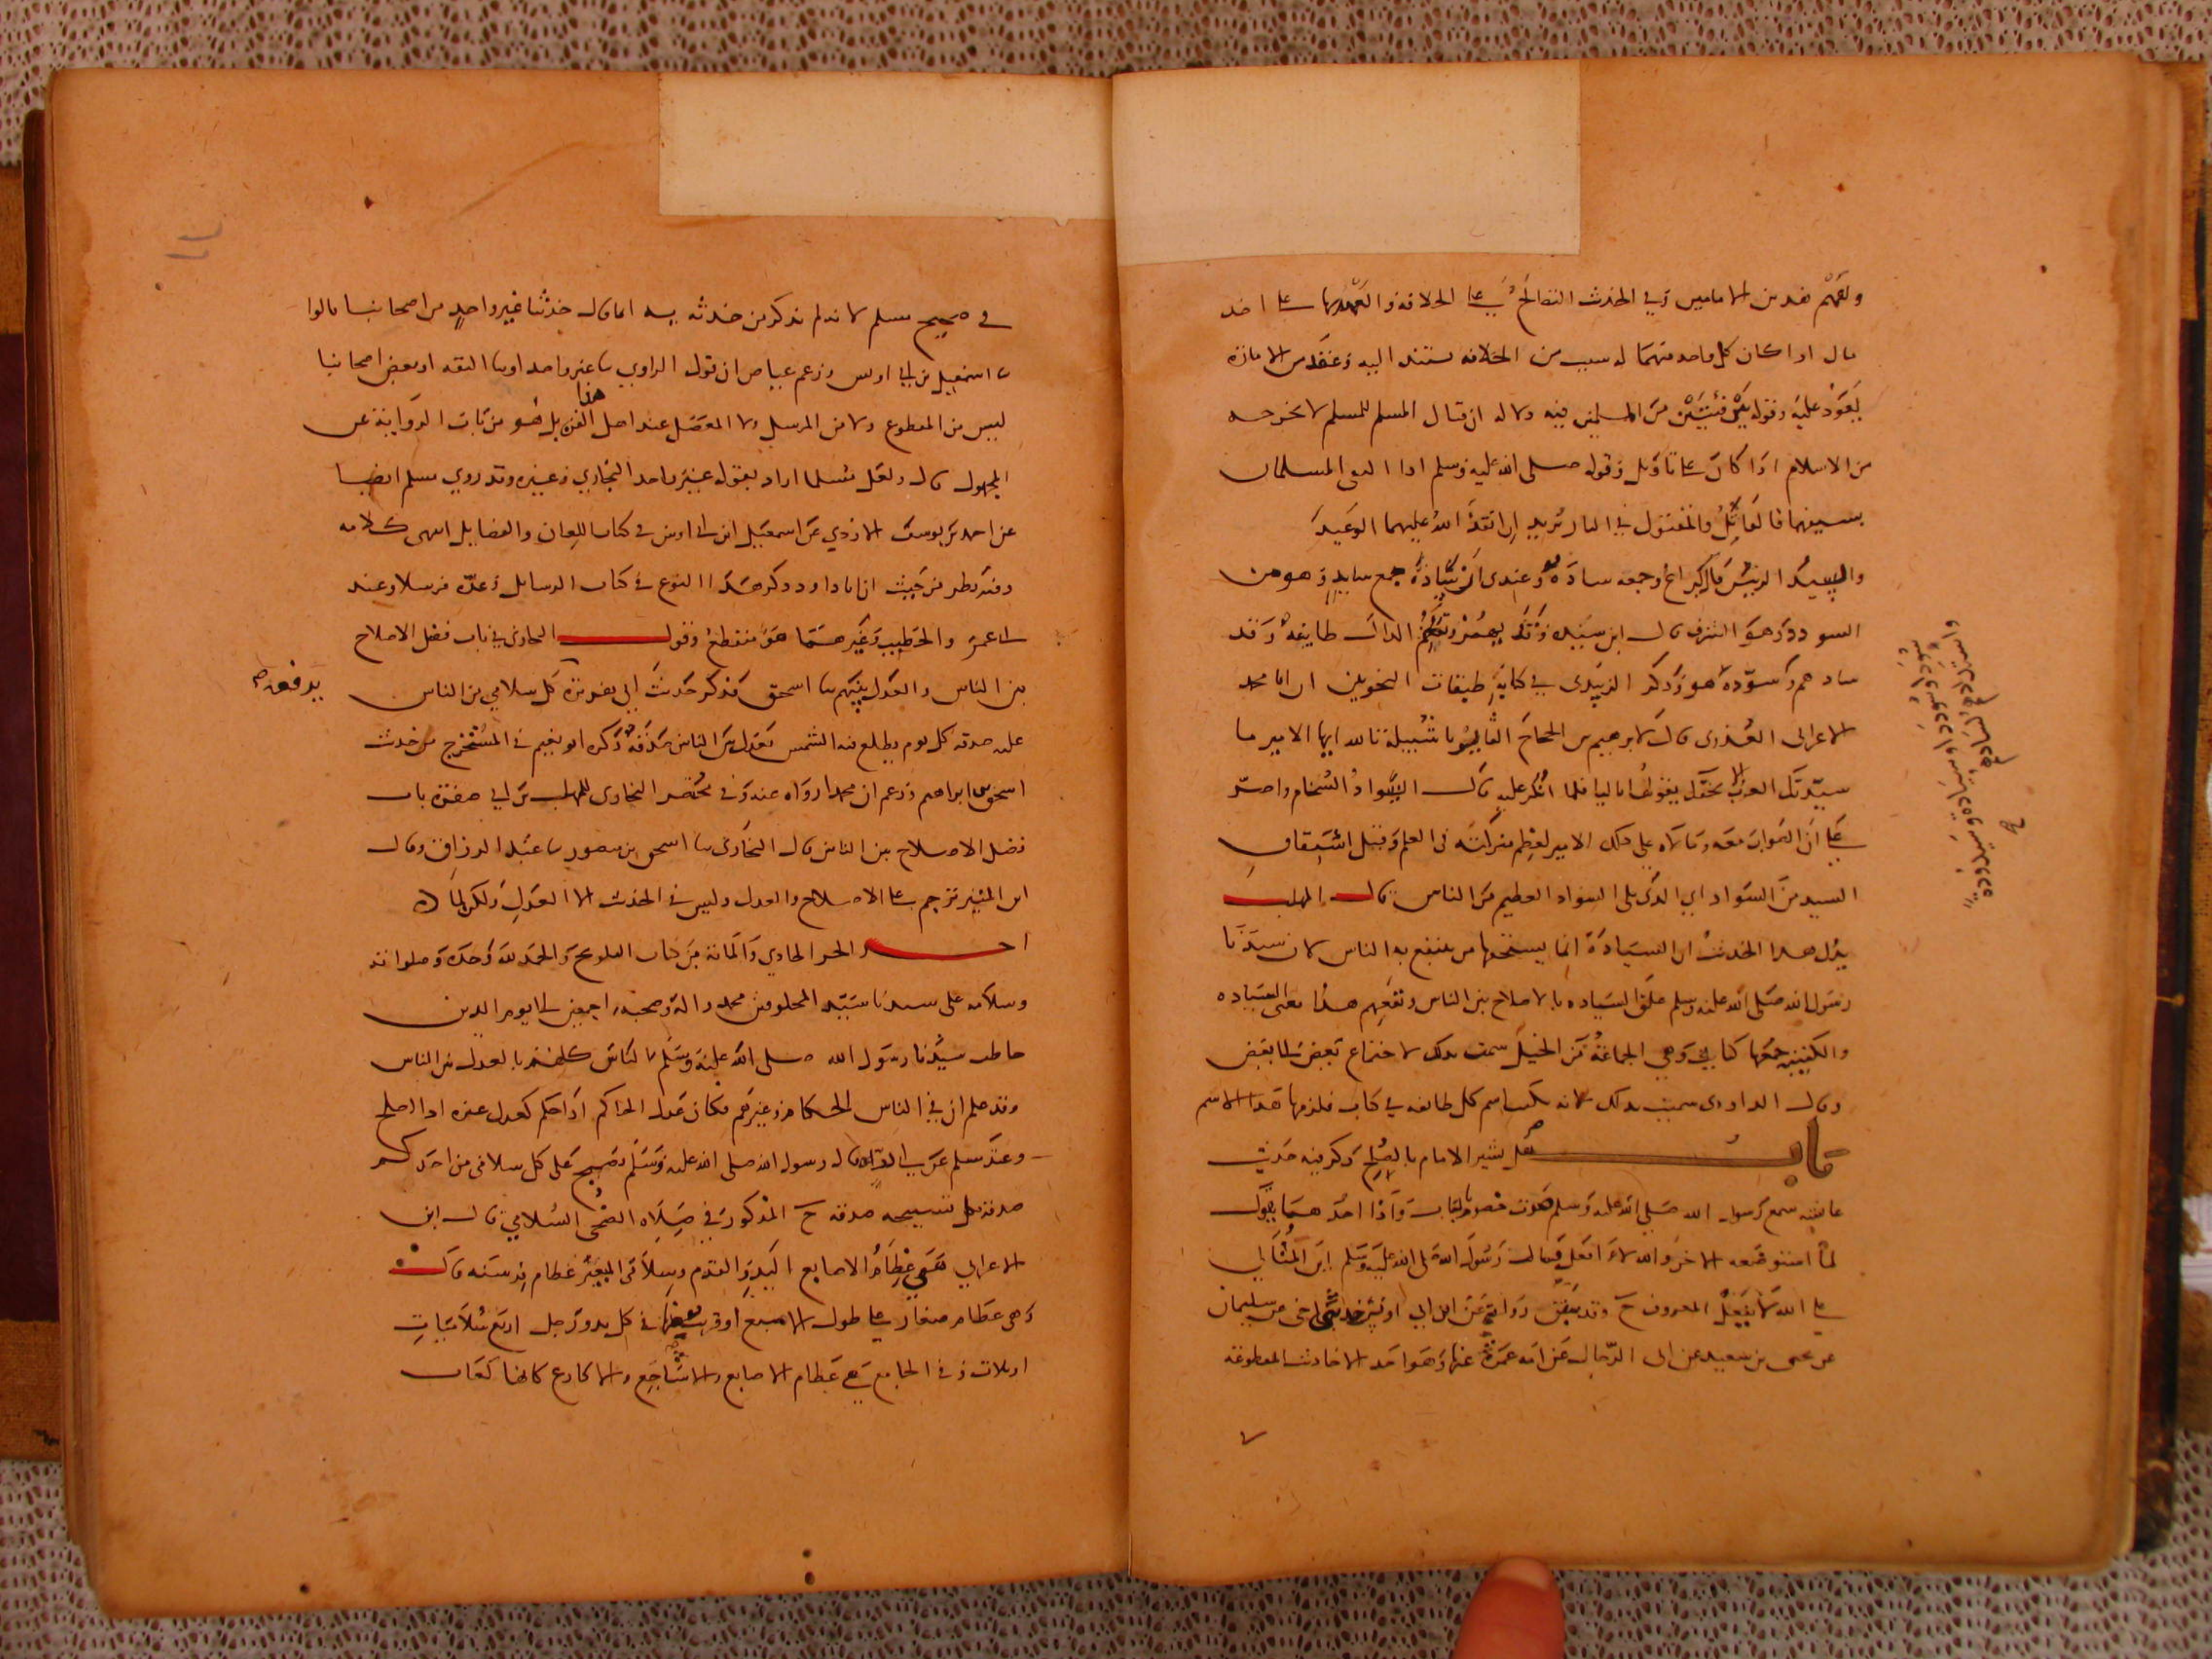 مال اذا كان كل واحد منهما له سبب من الخلافة يستند اليه وعقد من الامارة
يعود عليه وقوله بين فئتين من المسلمين فيه دلالة ان قتال المسلم للمسلم لا يخرجه
من الاسلام اذا كان على تاويل وقوله صلى الله عليه وسلم اذا التقى المسلمان
بسيفيهما فالقاتل والمقتول في النار يريد ان انفذ الله عليهما الوعيد
والسيد الرئيس قال كراع وجمعه سادة وعندى ان سادة جمع سايد وهو من
السودد وهو الشرف قال ابن سيده وقد
سادهم وسودهم هو وذكر الزبيدى في كتابه طبقات النحويين ان ابا محمد
الاعرابى العذرى قال لابرهيم بن الحجاج الثاير باشبيلية تالله ايها الامير ما
سيدتك العرب الا بحقك يقولها باليا فلما انكر عليه قال السواد السخام واصر
على ان الصواب معه ومالاه على ذلك الامير لعظم منزلته في العلم وقيل اشتقاق
السيد من السواد اي الذى يلى السواد العظيم من الناس قال المهلب
يدل هذا الحديث ان السيادة انما يستحقها من ينتفع به الناس لان سيدنا
رسول الله صلى الله عليه وسلم علق السياده بالاصلاح بين الناس ونفعهم هذا معنى السياده
والكتيبة جمعها كتايب وهي الجماعة من الخيل سميت بذلك لاجتماع بعض الى بعض
وقال الداودى سميت بذلك لانه يكتب اسم كل طايفه في كتاب فلزمها هذا الاسم
باب هل يشير الامام بالصلح ذكر فيه حديث
عايشه سمع رسول الله صلى الله عليه وسلم صوت خصوم بالباب واذا احدهما يقول
الاخر والله لا افعل فقال رسول الله صلى الله عليه وسلم اين المتالى
على الله لا يفعل المعروف ح وقد سبق رواه عن ابن ابي اويس حدثنى اخى عن سليمان
عن يحيى بن سعيد عن ابى الرجال عن امه عمرة عنها وهو احد الاحاديث المقطوعة
في صحيح مسلم لانه لم يذكر من حدثه به انما قال حدثنا غير واحد من اصحابنا قالوا
ثنا اسمعيل بن ابي اويس وزعم عياض ان قول الراوي ثنا غير واحد او ثنا الثقه او بعض اصحابنا
ليس من المقطوع ولا من المرسل ولا المعضل عند اهل هذا الفن بل هو من باب الرواية عن
المجهول قال ولعل مسلما اراد بقوله غير واحد البخاري وغيره وقد روي مسلم ايضا
عن احمد بن يوسف الازدي عن اسمعيل ابن ابي اويس في كتاب اللعان والفضايل انتهى كلامه
وفيه نظر من حيث ان ابا داود ذكر هذا النوع في كتاب المراسيل وعده مرسلا وعند
ابي عمر والخطيب وغيرهما هو منقطع وقول البخارى في باب فضل الاصلاح
بين الناس والعدل بينهم ثنا اسحق فذكر حديث ابي هريرة كل سلامي من الناس
عليه صدقه كل يوم يطلع فيه الشمس يعدل بين الناس صدقة ذكره ابو نعيم في المستخرج من حديث
اسحق بن ابراهيم وزعم ان محمدا رواه عنه وفي مختصر البخارى للمهلب بن ابي صفرة باب
فضل الاصلاح بين الناس قال البخارى ثنا اسحق بن منصور ثنا عبد الرزاق وقال
ابن المنير ترجم على الاصلاح والعدل وليس في الحديث الا العدل ولكن لما
اخر الجزء الحادي والمائة من كتاب التلويح والحمد لله وحده وصلواته
وسلامه على سيدنا سيد المخلوقين محمد واله وصحبه اجمعين الى يوم الدين
خاطب سيدنا رسول الله صلى الله عليه وسلم الناس كلهم بالعدل بين الناس
وقد علم ان في الناس الحكام وغيرهم فكان عدل الحاكم اذا حكم كعدل غيره اذا اصلح
وعند مسلم عن قال رسول الله صلى الله عليه وسلم يصبح على كل سلامى من احدكم
صدقة كل تسبيحه صدقه ح المذكور في صلاه الضحى السلامي قال ابن
الاعرابي هي عظام الاصابع اليد والقدم وسلامى البعير عظام فرسنه قال
وهى عظام صغار على طول الاصبع او قريب منها في كل يد ورجل اربع سلاميات
او ثلاث وفي الجامع هي عظام الاصابع والاشاجع والاكارع كانها كعاب